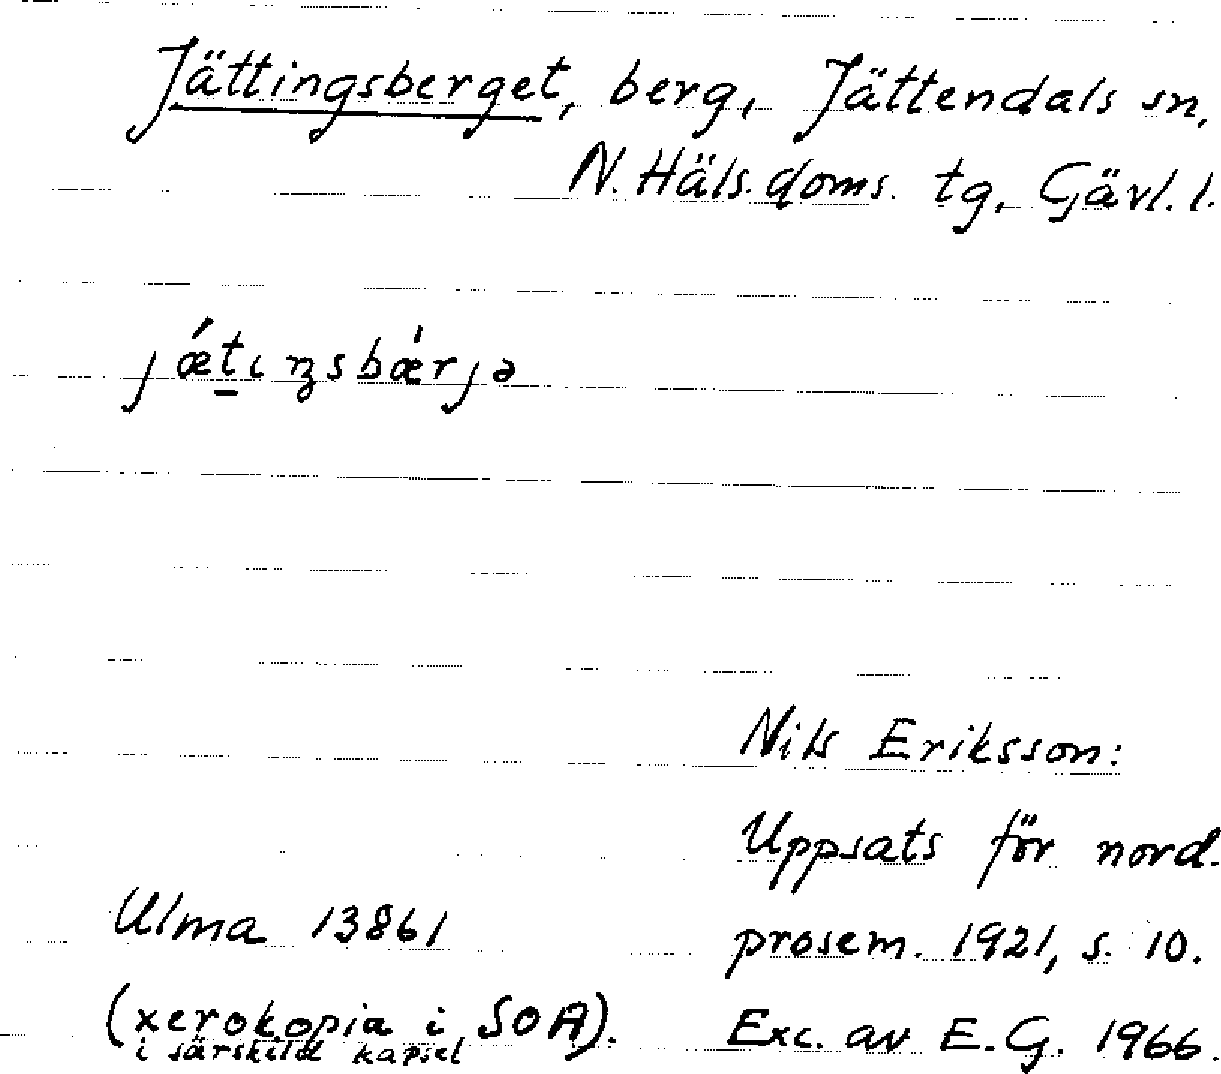 Jättingsberget, berg, Jättendals sn,
N. Häls. doms. tg, Gävl. l.
jǽt̠ıŋsbǽrjə
Nils Eriksson:
Uppsats för nord.
prosem. 1921, s. 10.
Exc. av E.G. 1966.
Ulma 13861
(xerokopia i SOA).
i särskild kapsel